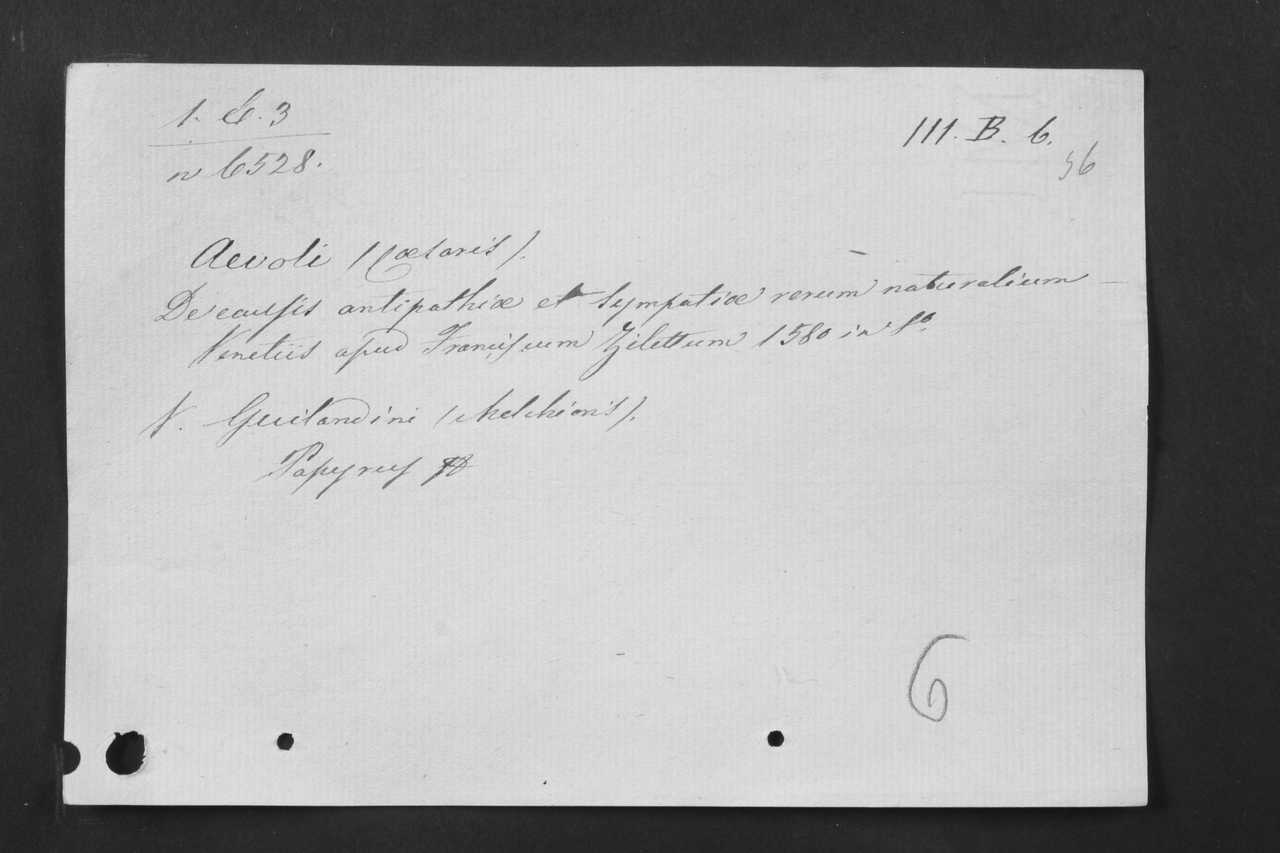 1. C. 3
n 6528.
III. B. 6.
56
Aevoli (Cæsaris).
De caussis antipathiæ et sympatiæ rerum naturalium
Venetiis apud Franciscum Zilettum 1580 in 8º
V. Guilandini (Melchioris).
Papyrus
6